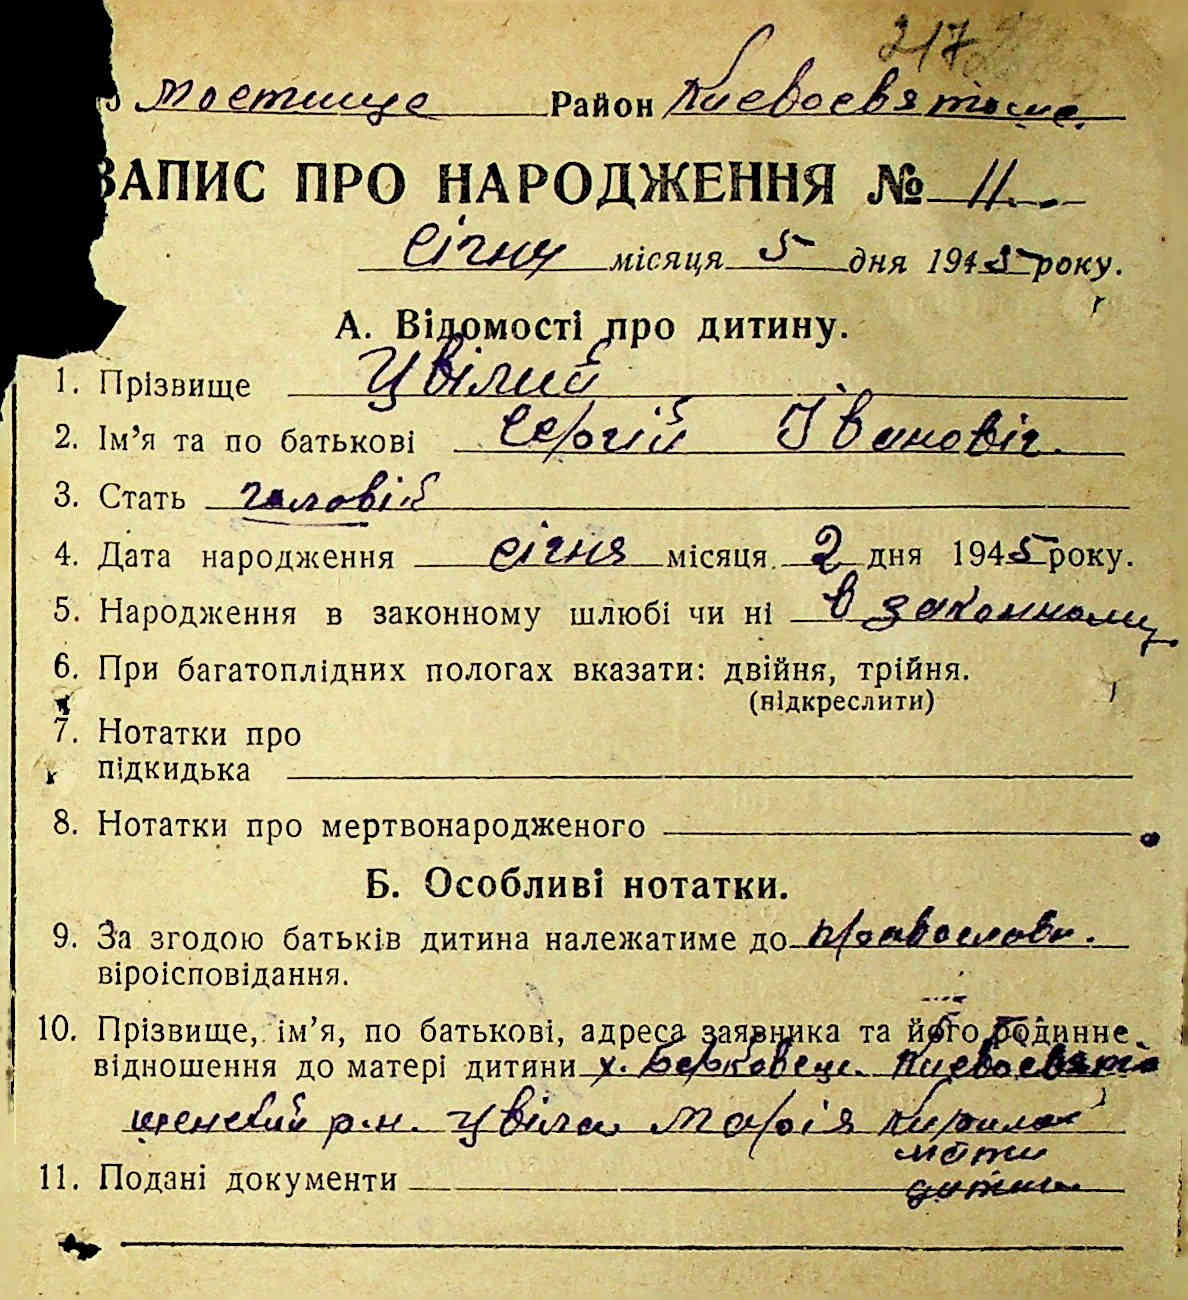 217
мостище Район Киевосвятоше.
ЗАПИС ПРО НАРОДЖЕННЯ № 11
січну місяця 5 дня 1945 року.
А. Відомості про дитину.
1. Прізвище Цвілий
2. Ім'я та по батькові Сергій Івановіч.
3. Стать чоловій
4. Дата народження січня місяця 2 дня 1945 року.
5. Народження в законному шлюбі чи ні в законному
6. При багатоплідних пологах вказати: двійня, трійня.
(підкреслити)
7. Нотатки про
підкидька
8. Нотатки про мертвонародженого
Б. Особливі нотатки.
9. За згодою батьків дитина належатиме до православн.
віроісповідання.
10. Прізвище, ім'я, по батькові, адреса заявника та його родинне
відношення до матері дитини х. Берковець. Киевосвято
шенский р.н. Цвіла Марія
мати
11. Подані документи дитини